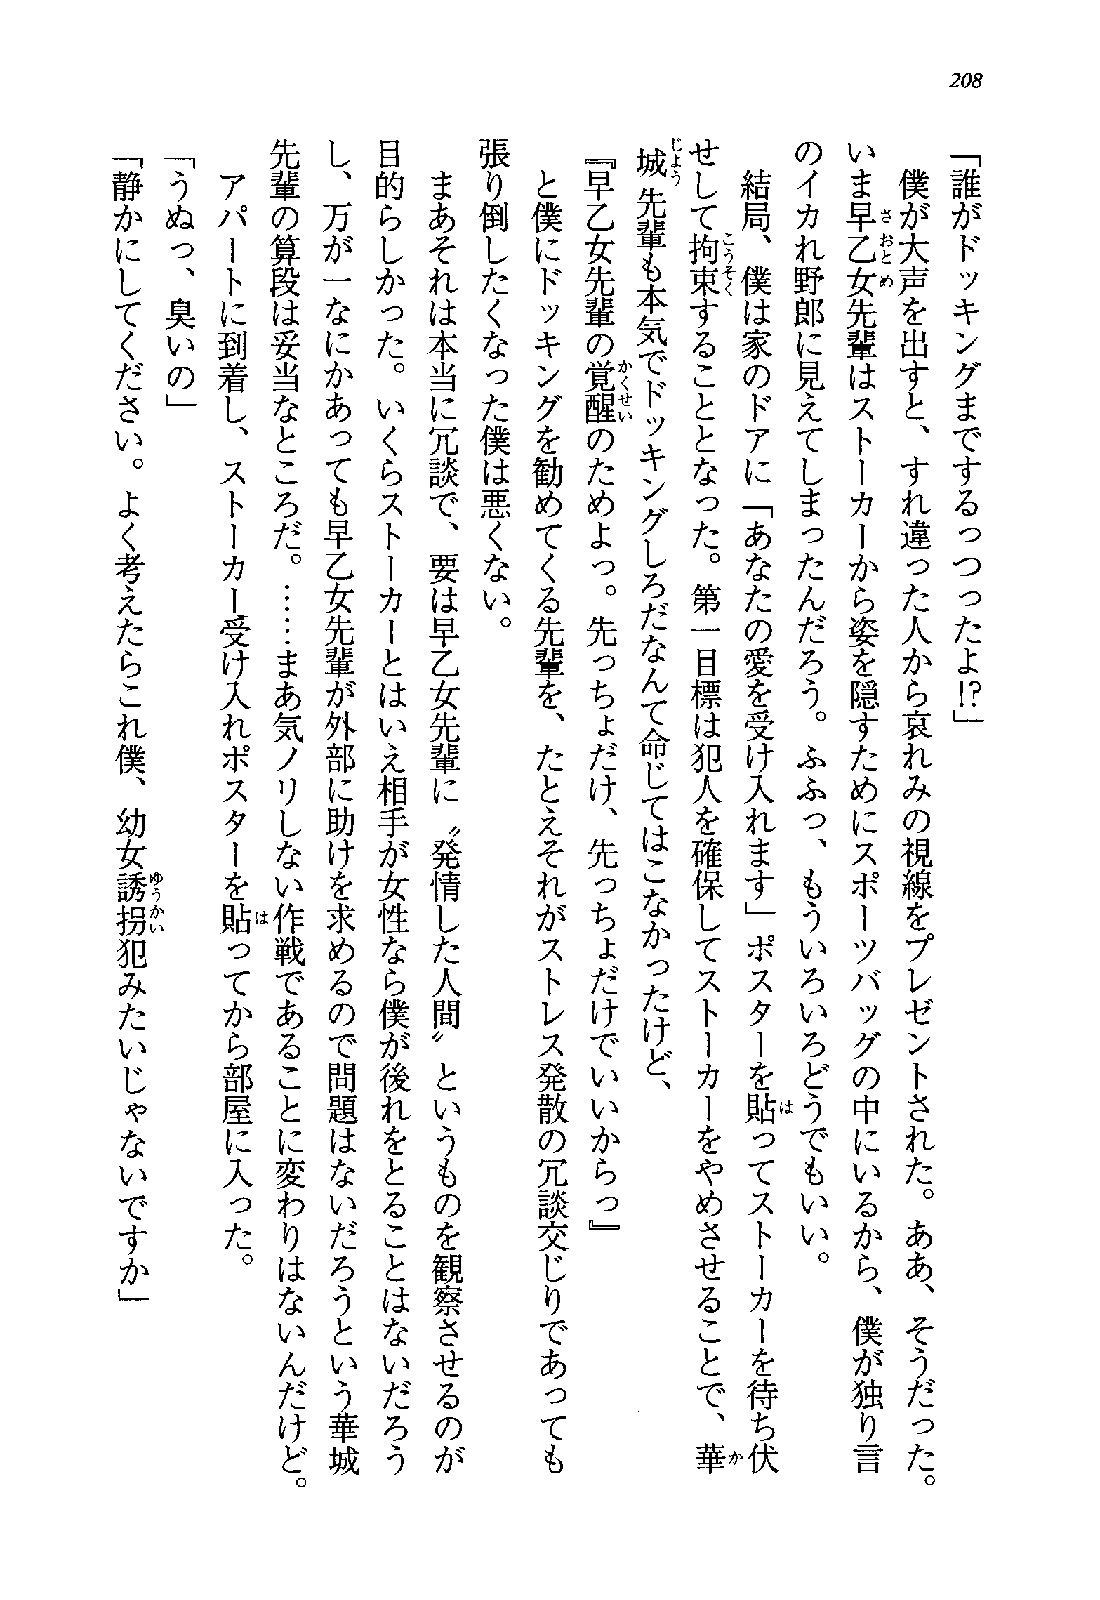 208
「誰がドッキングまでするっつったよ!?」
　僕が大声を出すと、すれ違った人から哀れみの視線をプレゼントされた。ああ、そうだった。
いま早乙女先輩はストーカーから姿を隠すためにスポーツバッグの中にいるから、僕が独り言
のイカれ野郎に見えてしまったんだろう。ふふっ、もういろいろどうでもいい。
　結局、僕は家のドアに「あなたの愛を受け入れます」ポスターを貼ってストーカーを待ち伏
せして拘束することとなった。第一目標は犯人を確保してストーカーをやめさせることで、華
城先輩も本気でドッキングしろだなんて命じてはこなかったけど、
『早乙女先輩の覚醒のためよっ。先っちょだけ、先っちょだけでいいからっ』
　と僕にドッキングを勧めてくる先輩を、たとえそれがストレス発散の冗談交じりであっても
張り倒したくなった僕は悪くない。
　まあそれは本当に冗談で、要は早乙女先輩に〝発情した人間〟というものを観察させるのが
目的らしかった。いくらストーカーとはいえ相手が女性なら僕が後れをとることはないだろう
し、万が一なにかあっても早乙女先輩が外部に助けを求めるので問題はないだろうという華城
先輩の算段は妥当なところだ。……まあ気ノリしない作戦であることに変わりはないんだけど。
　アパートに到着し、ストーカー受け入れポスターを貼ってから部屋に入った。
「うぬっ、臭いの」
「静かにしてください。よく考えたらこれ僕、幼女誘拐犯みたいじゃないですか」